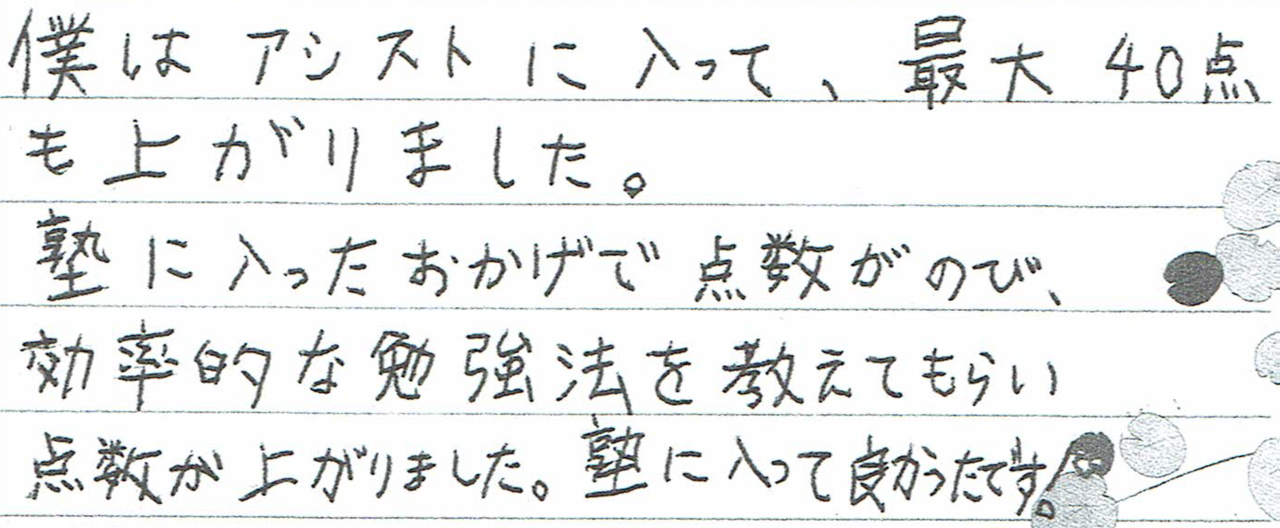 僕はアシストに入って、最大40点
も上がりました。
塾に入ったおかげで点数がのび、
効率的な勉強法を教えてもらい
点数が上がりました。塾に入って良かったです。